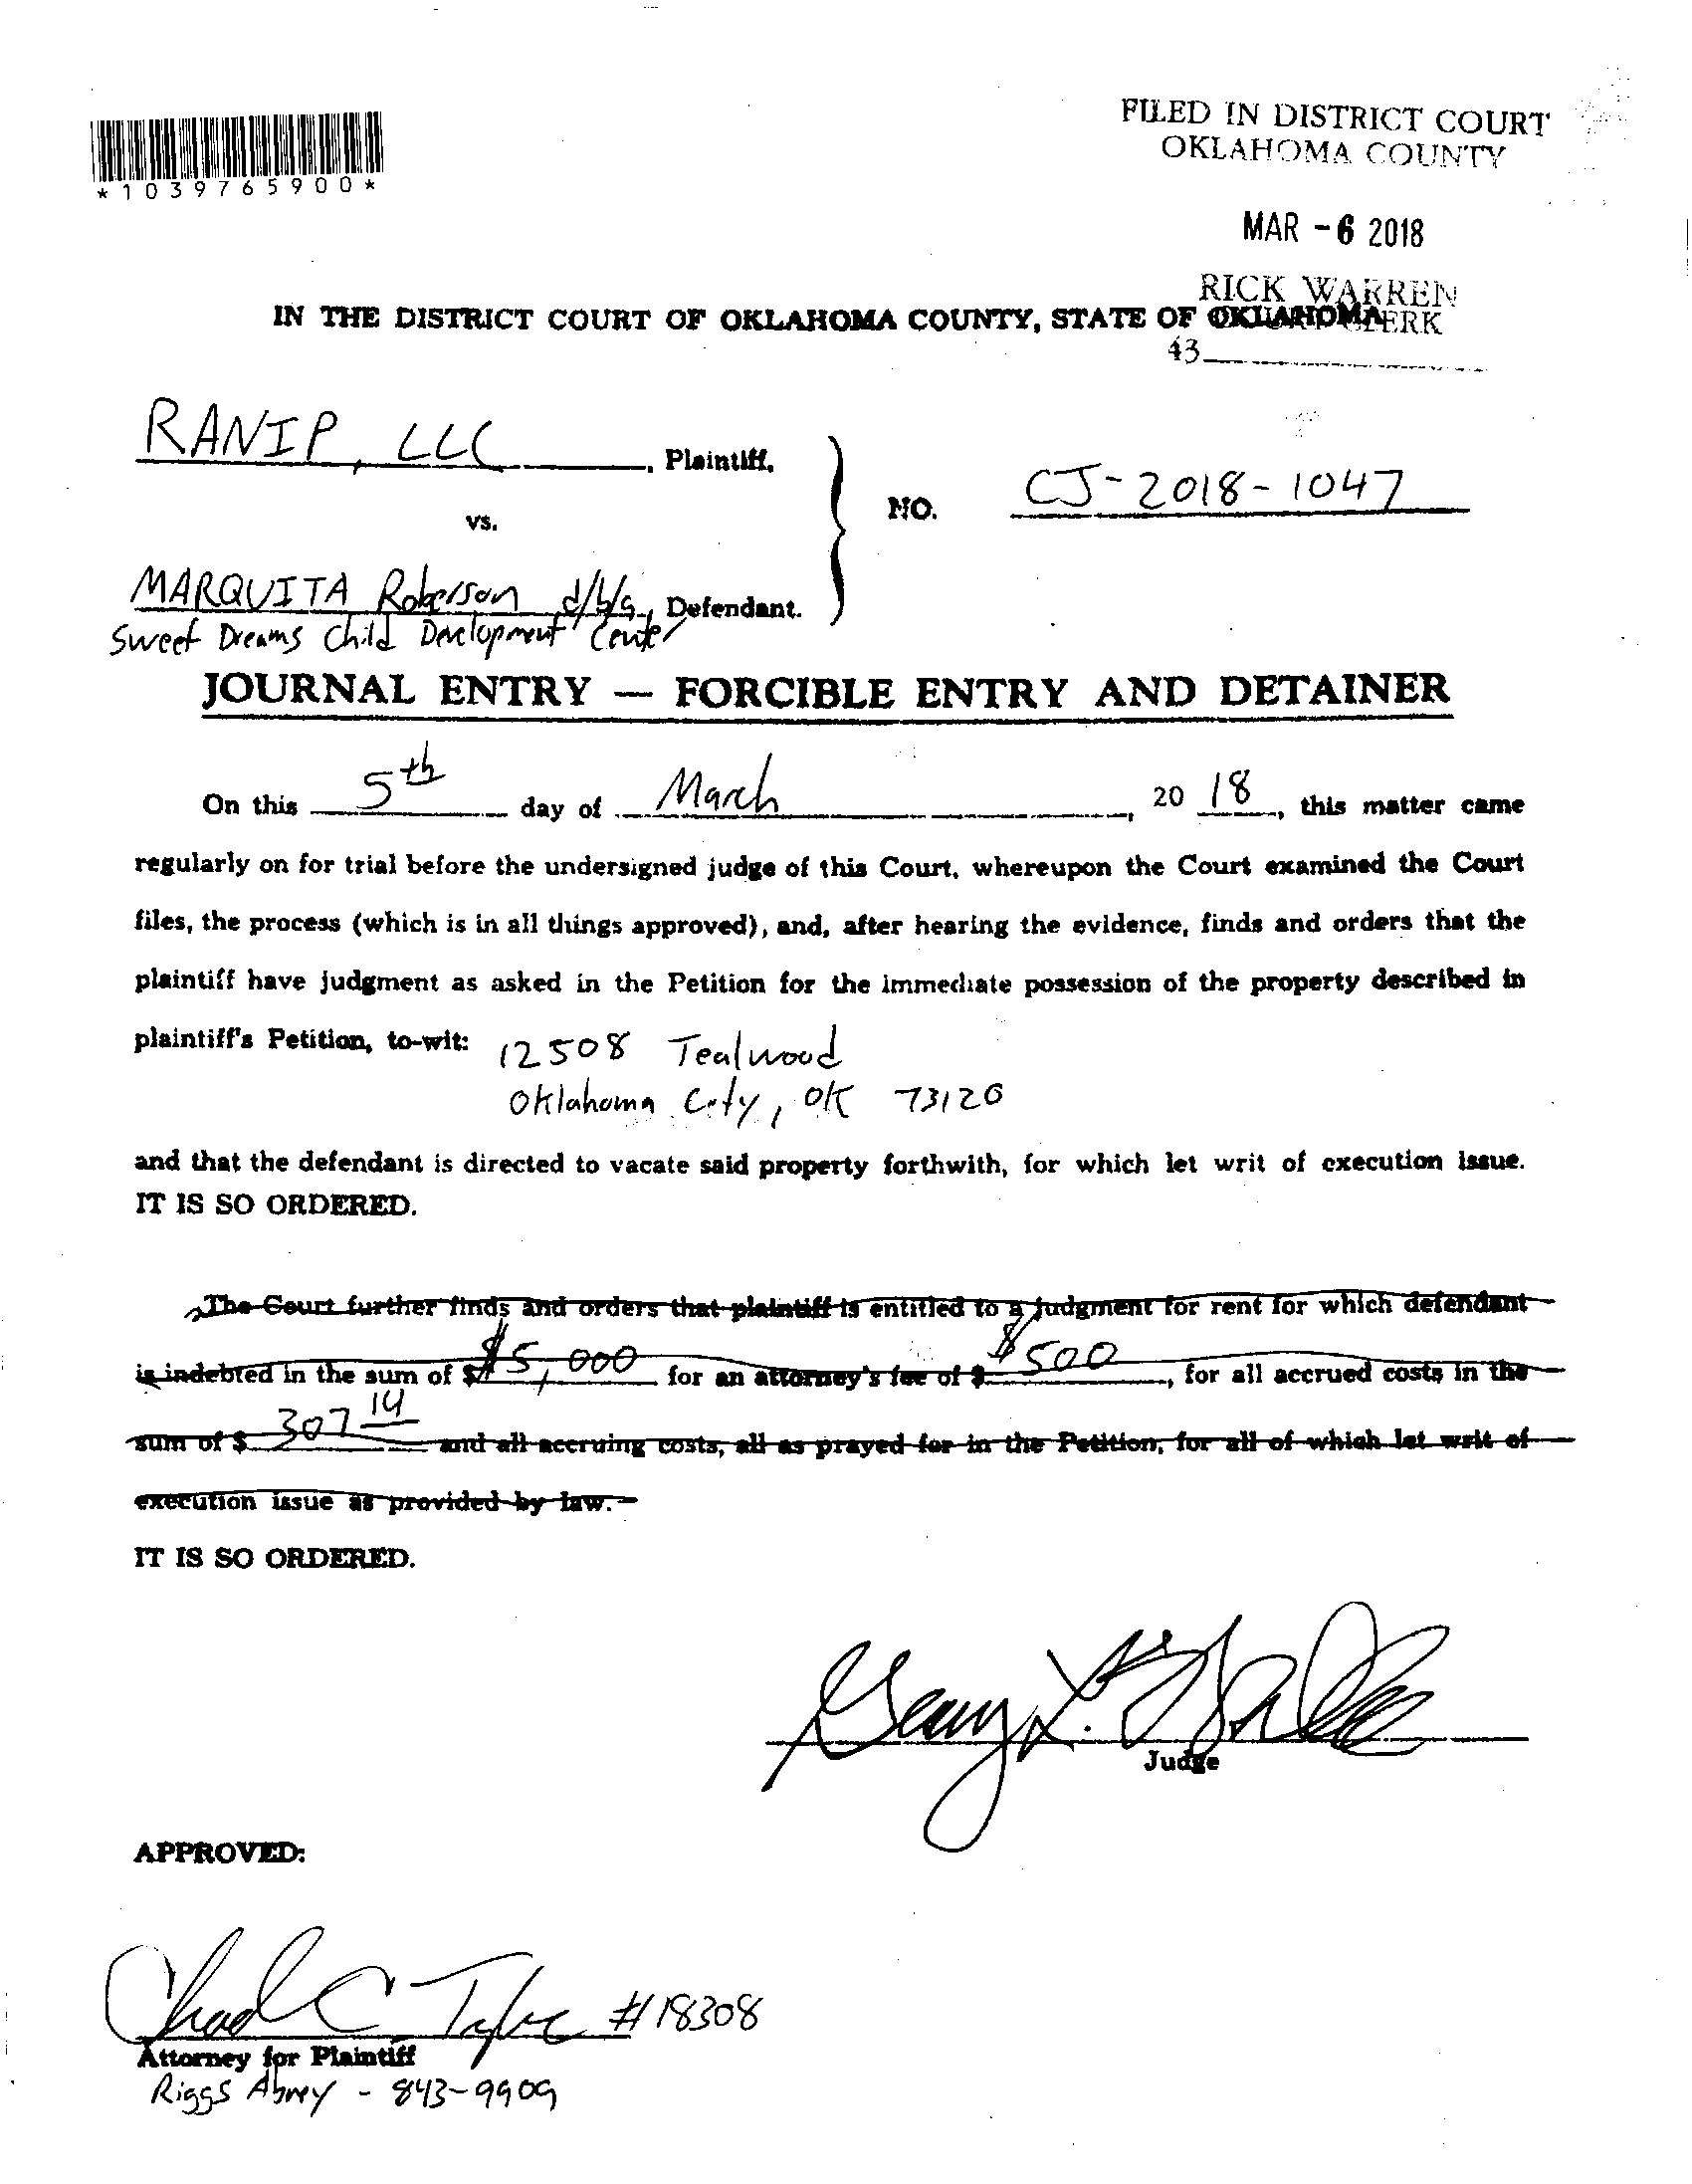 FILED IN DISTRICT COURT
OKLAHOMA COUNTY
*1039765900*
MAR -6 2018
RICK WARREN
IN THE DISTRICT COURT OF OKLAHOMA COUNTY, STATE OF OKLAHOMA
43
RANIP, LLC, Plaintiff,
vs.
NO. CJ-2018-1047
MARQUITA Roberson d/b/a, Defendant.
Sweet Dreams Child Development Center
JOURNAL ENTRY — FORCIBLE ENTRY AND DETAINER
On this 5th day of March, 20 18, this matter came
regularly on for trial before the undersigned judge of this Court, whereupon the Court examined the Court
files, the process (which is in all things approved), and, after hearing the evidence, finds and orders that the
plaintiff have judgment as asked in the Petition for the immediate possession of the property described in
plaintiff's Petition, to-wit: 12508 Tealwood
Oklahoma City, OK 73120
and that the defendant is directed to vacate said property forthwith, for which let writ of execution issue.
IT IS SO ORDERED.
The Court further finds and orders that plaintiff is entitled to a judgment for rent for which defendant
is indebted in the sum of $ $5,000 for an attorney's fee of $ $500, for all accrued costs in the
sum of $ 307 14 and all accruing costs, all as prayed for in the Petition, for all of which let writ of
execution issue as provided by law.
IT IS SO ORDERED.
Judge
APPROVED:
Chad C Taylor #18308
Attorney for Plaintiff
Riggs Abney - 843-9909